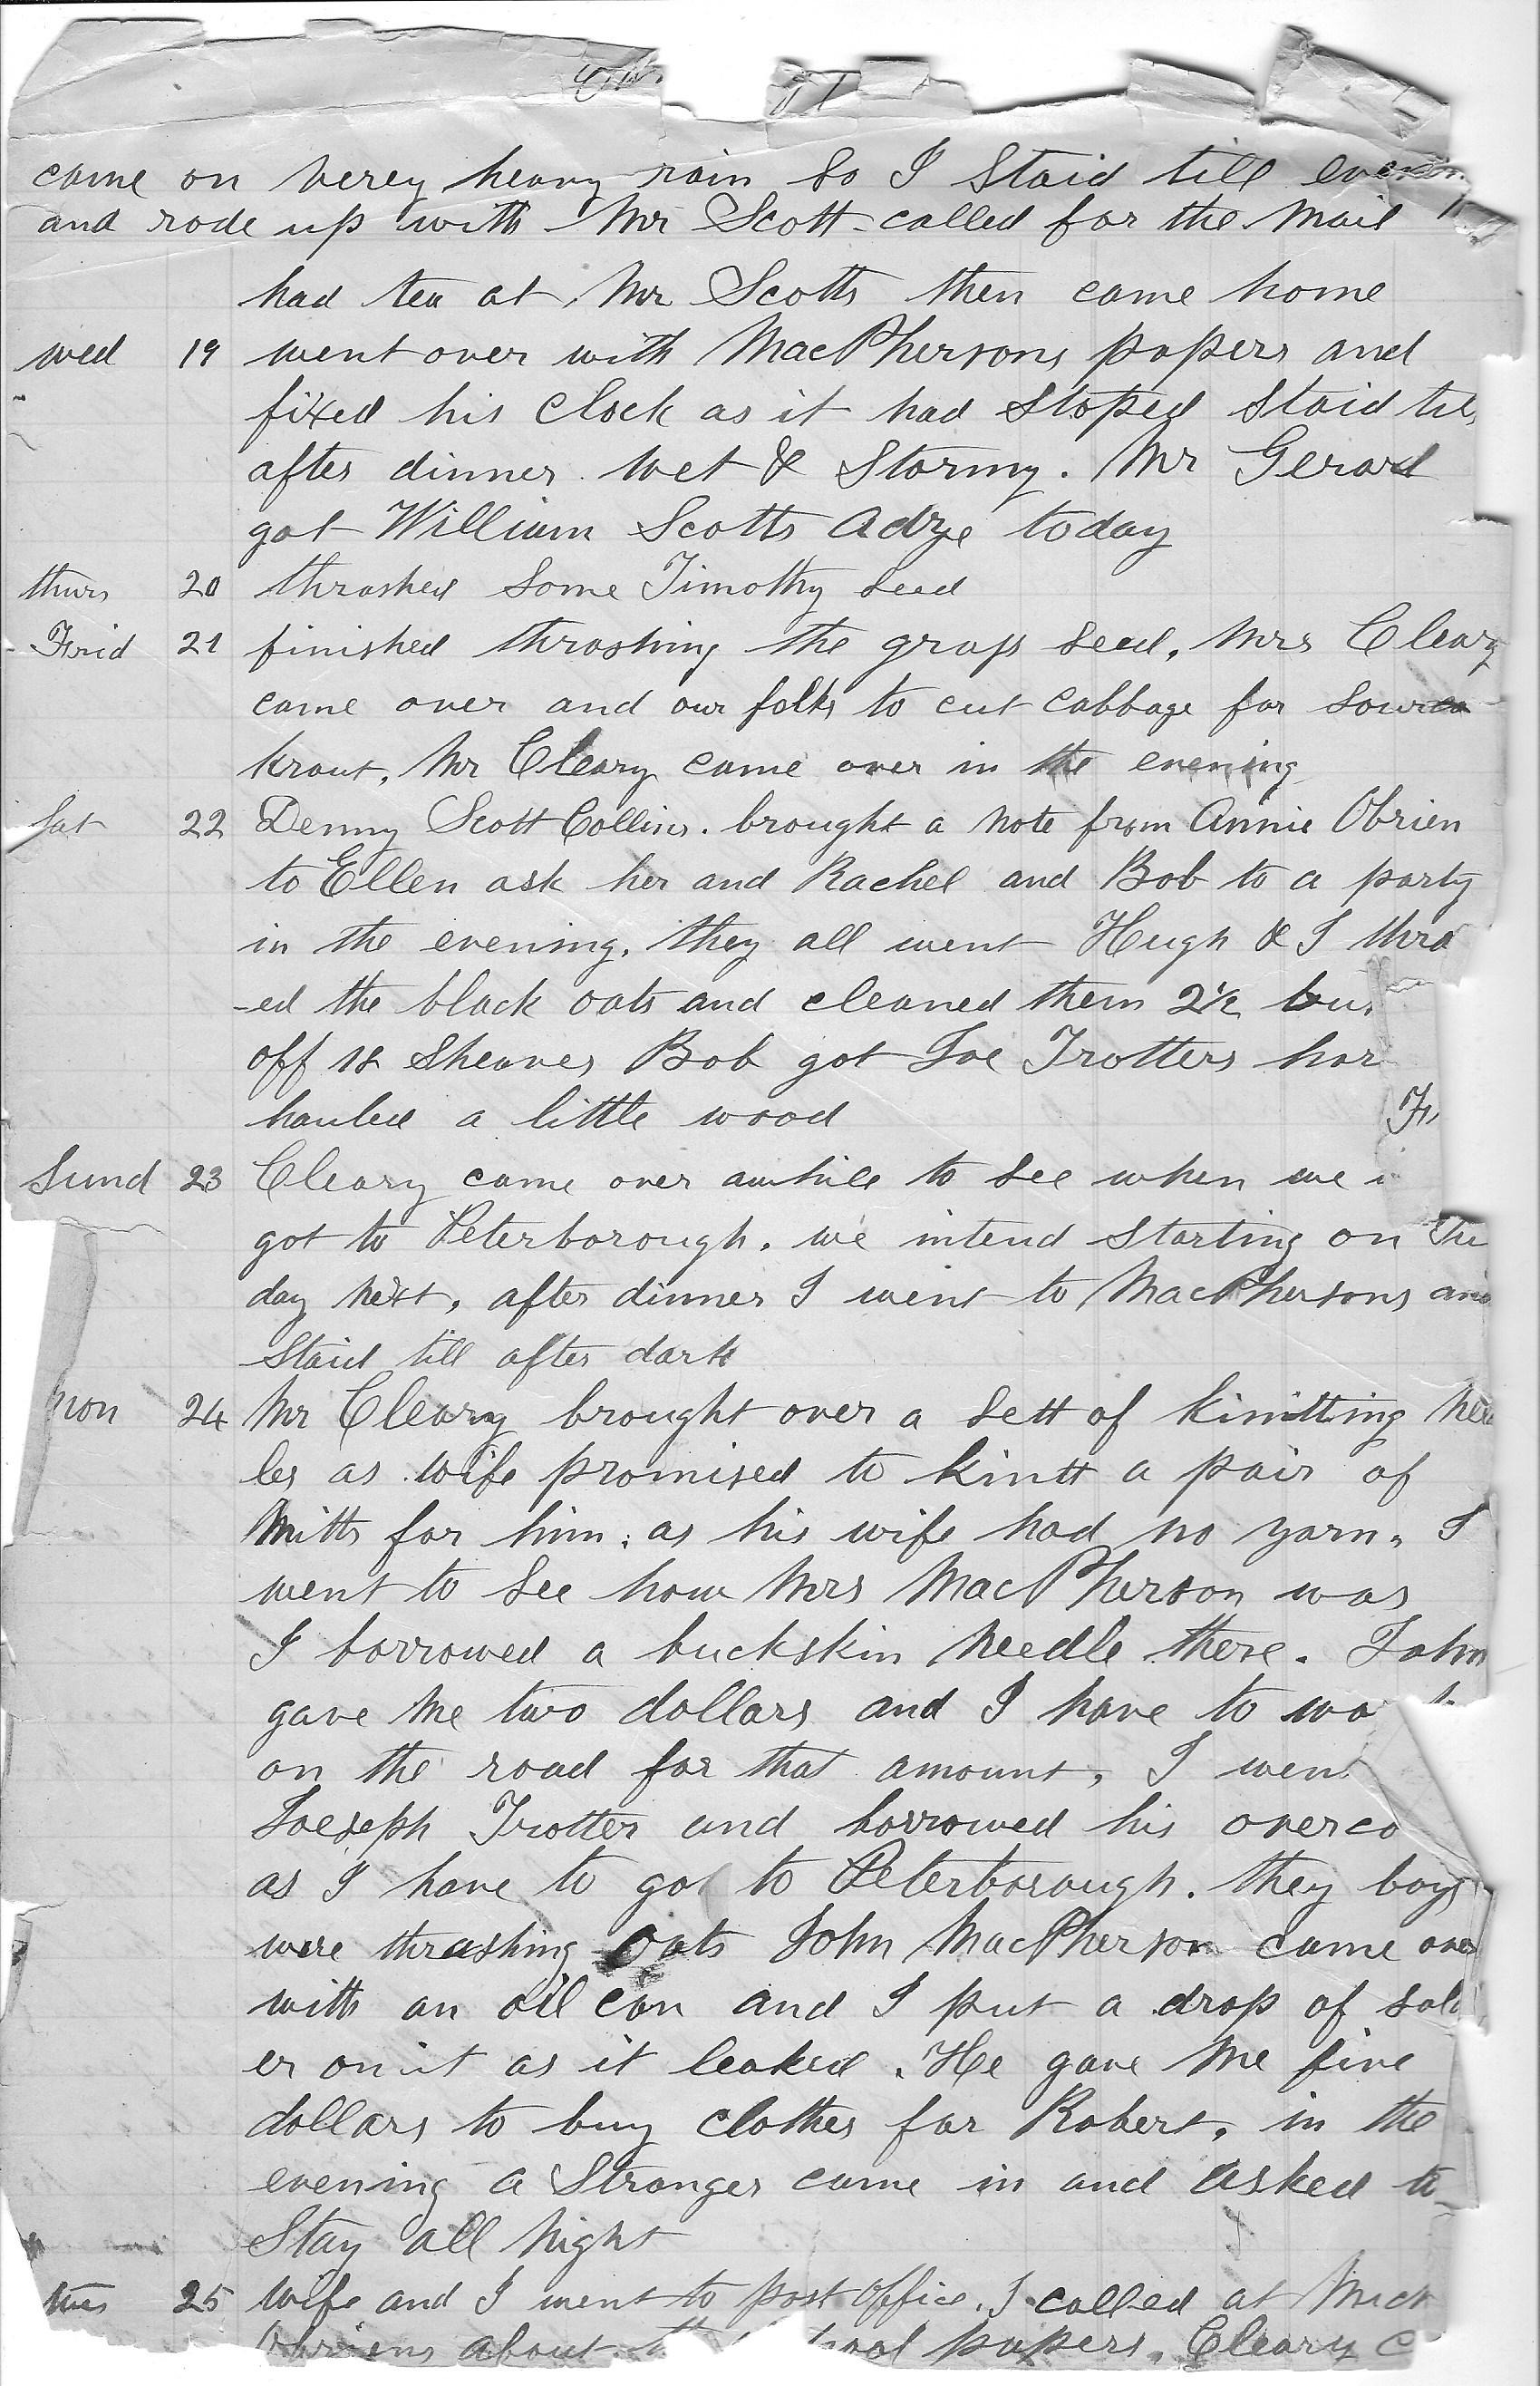 came on verey heavy rain So I Staid till even
and rode up with Mr Scott called for the Mail
had tea at Mr Scotts then came home
wed 19 went over with MacPhersons papers and
fixed his Clock as it had Stoped Staid till
after dinner. wet & Stormy. Mr Gerard
got William Scotts Adze today
thurs 20 thrashed Some Timothy Seed
Frid 21 finished thrashing the grass Seed. Mrs Cleary
came over and our folks to cut cabbage for Sour
krout, Mr Cleary came over in the evening
Sat 22 Denny Scott Collins. brought a Note from Annie Obrien
to Ellen ask her and Rachel and Bob to a party
in the evening. they all went Hugh & I thra
-ed the black oats and cleaned them 2½ bus
off 18 Sheaves Bob got Joe Trotters hor
hauled a little wood
Sund 23 Cleary came over awhile to See when we
got to Peterborough. we intend Starting on Tu
day Next, after dinner I went to MacPhersons and
Staid till after dark
Mon 24 Mr Cleary brought over a Sett of Kinitting Need
les as wife promised to Kintt a pair of
Mitts for him. as his wife had no yarn. I
went to See how Mrs MacPherson was
I borrowed a buckskin Needle there. John
gave Me two dollars and I have to wo
on the road for that amount, I went
Joeseph Trotter and borrowed his overco
as I have to go to Peterborough. they boys
were thrashing Oats John MacPherson came over
with an oil can and I put a drop of sold
er on it as it leaked. He gave Me five
dollars to buy clothes for Robert, in the
evening a Stranger came in and asked to
Stay all Night
tues 25 Wife and I went to post Office. I called at Mick
Obriens about papers. Cleary c